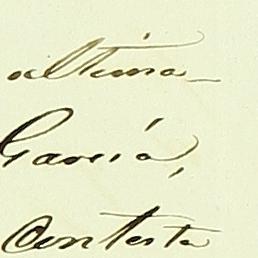 ultima
García,
Contesta